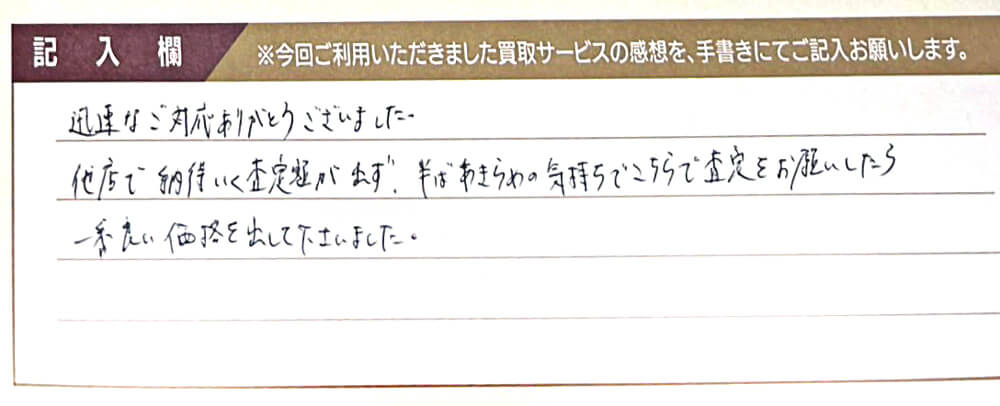 記入欄
※今回ご利用いただきました買取サービスの感想を、手書きにてご記入お願いします。
迅速なご対応ありがとうございました。
他店で納得いく査定額が出ず、半ばあきらめの気持ちでこちらで査定をお願いしたら
一番良い価格を出して下さいました。